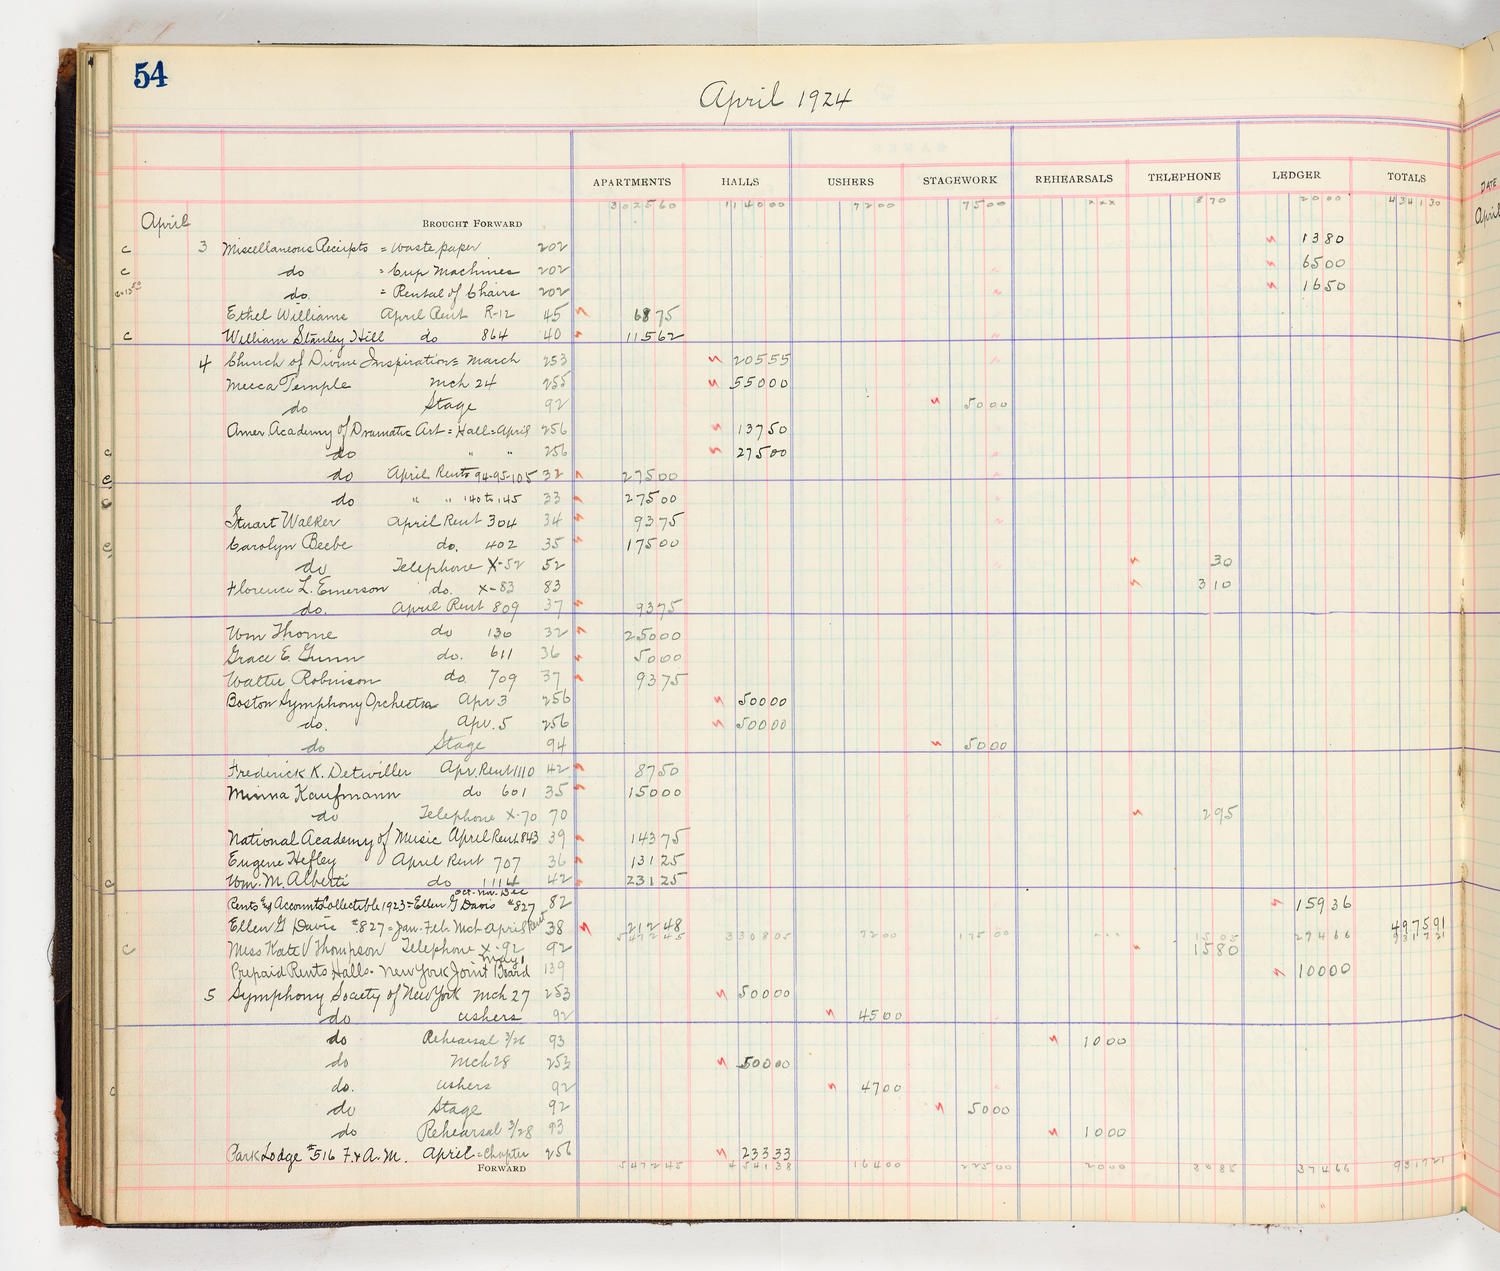 54
April 1924
APARTMENTS HALLS USHERS STAGEWORK REHEARSALS TELEPHONE LEDGER TOTALS
DATE
April BROUGHT FORWARD 302560 114000 7200 7500 xxx 870 2000 434130
April
c 3 Miscellaneous Receipts = Waste paper 202 1380
c do = Cup Machines 202 6500
do. = Rental of Chairs 202 1650
Ethel Williams April Rent R-12 45 6875
c William Stanley Hill do 864 40 11562
4 Church of Divine Inspiration = March 253 20555
Mecca Temple Mch 24 255 55000
do Stage 92 5000
Amer Academy of Dramatic Art = Hall = April 256 13750
c do " " 256 27500
c do April Rents 94-95-105 32 27500
c do " " 140 to 145 33 27500
Stuart Walker April Rent 304 34 9375
c Carolyn Beebe do. 402 35 17500
do Telephone X-52 52 30
Florence L. Emerson do. X-83 83 310
do. April Rent 809 37 9375
Wm Thorne do 130 32 25000
Grace E. Gunn do. 611 36 5000
Walter Robinson do. 709 37 9375
Boston Symphony Orchestra Apr 3 256 50000
do. Apr. 5 256 50000
do Stage 94 5000
Frederick K. Detwiller Apr. Rent 1110 42 8750
Minna Kaufmann do 601 35 15000
do Telephone X-70 70 295
National Academy of Music April Rent 843 39 14375
Eugene Hefley April Rent 707 36 13125
c Wm. M. Alberti do 1114 42 23125
Oct. Nov. Dec
Rents & Accounts Collectible 1923 = Ellen G Davis #827 82 15936
Ellen G Davis #827 = Jan. Feb. Mch April Rent 38 21248 497591
547245 330805 7200 17500 --- 1505 27466 931721
c Miss Kate V Thompson Telephone X-92 92 1580
May 1
Prepaid Rents Halls - New York Joint Board 139 10000
5 Symphony Society of New York Mch 27 253 50000
do ushers 92 4500
do Rehearsal 3/26 93 1000
do Mch 28 253 50000
c do. ushers 92 4700
do Stage 92 5000
do Rehearsal 3/28 93 1000
Park Lodge #516 F. & A. M. April = Chapter 256 23333
FORWARD 547245 454138 16400 22500 2000 3085 37466 931721